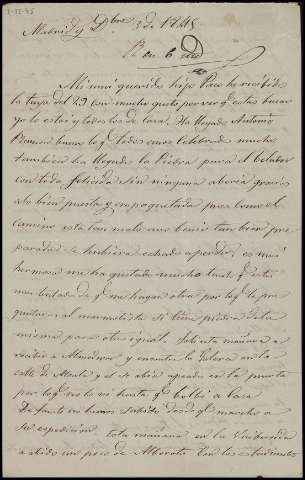 1-12-45
Madrid y Dbre 3 d. 1845
R en 6 dho
Mi mui querido hijo Paco he recibido
la tuya del 29 con mucho gusto por ver q estas bueno
yo lo estoi y todos los de casa. Ha llegado Antonio
Ramon bueno lo q todos emos celebrado mucho
tambien ha llegado la Piedra para el Velador
con toda felicida sin ninguna aberia gracias
a lo bien puesta y empaquetada pues como el
camino esta tan malo sino benia tan bien pre-
parada se hubiera echado a perder; es mui
hermosa me ha gustado mucho tanto q estoi
mui tentada de q me hagan otra por lo q te pre-
guntaras al marmolista si tiene piedra de la
misma para otra igual. Sali esta mañana a
recibir a Almodovar y encontre la Galera en la
calle de Alcala y el se abia apeado en la puerta
por lo q no lo vi hasta q bolbi a casa
De Fausto no hemos sabido desde q marcho a
su espedicion. Esta mañana en la Unibersida
a abido un poco de Alboroto con los estudiantes